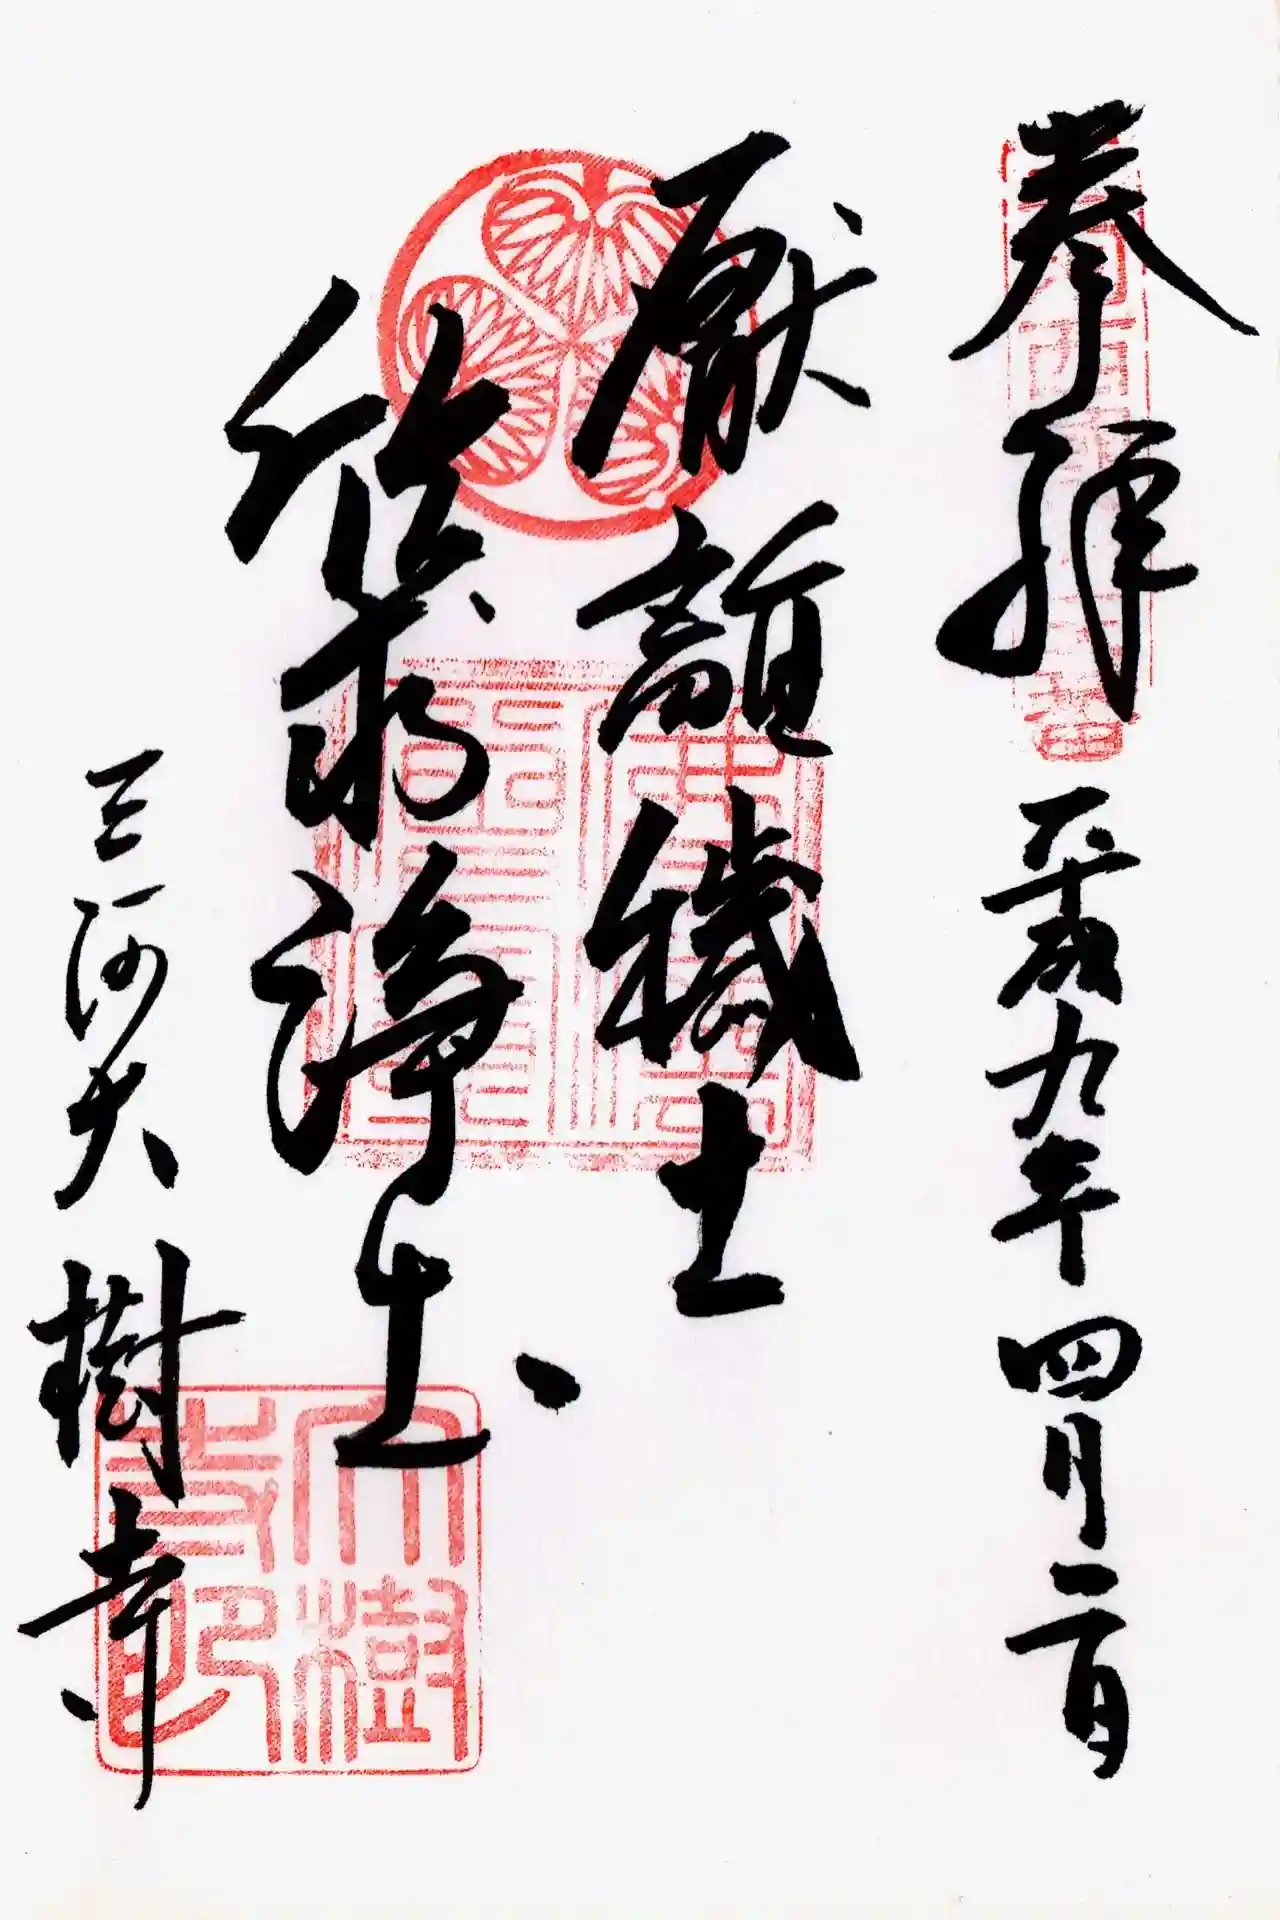 奉拝 平成九年四月二日
厭離穢土
欣求淨土
三河 大樹寺
大樹
寺印